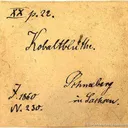 XX p. 22.
Kobaltblüthe.
Schneeberg
in Sachsen.
J. 1860
N. 230.